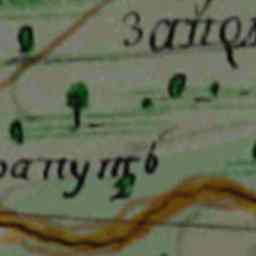 Запол
рапуть